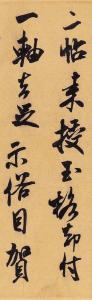 二帖來授玉格却付
一軸去足示俗目賀